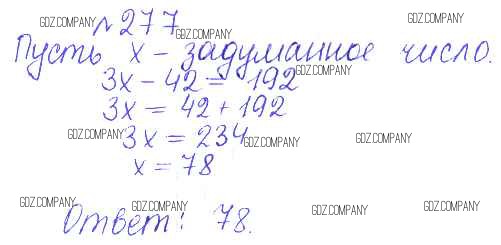 №277
GDZ.COMPANY GDZ.COMPANY GDZ.COMPANY
Пусть x - задуманное число.
3x - 42 = 192
GDZ.COMPANY GDZ.COMPANY
3x = 42 + 192
3x = 234
GDZ.COMPANY GDZ.COMPANY GDZ.COMPANY
x = 78
GDZ.COMPANY GDZ.COMPANY GDZ.COMPANY GDZ.COMPANY
Ответ: 78.